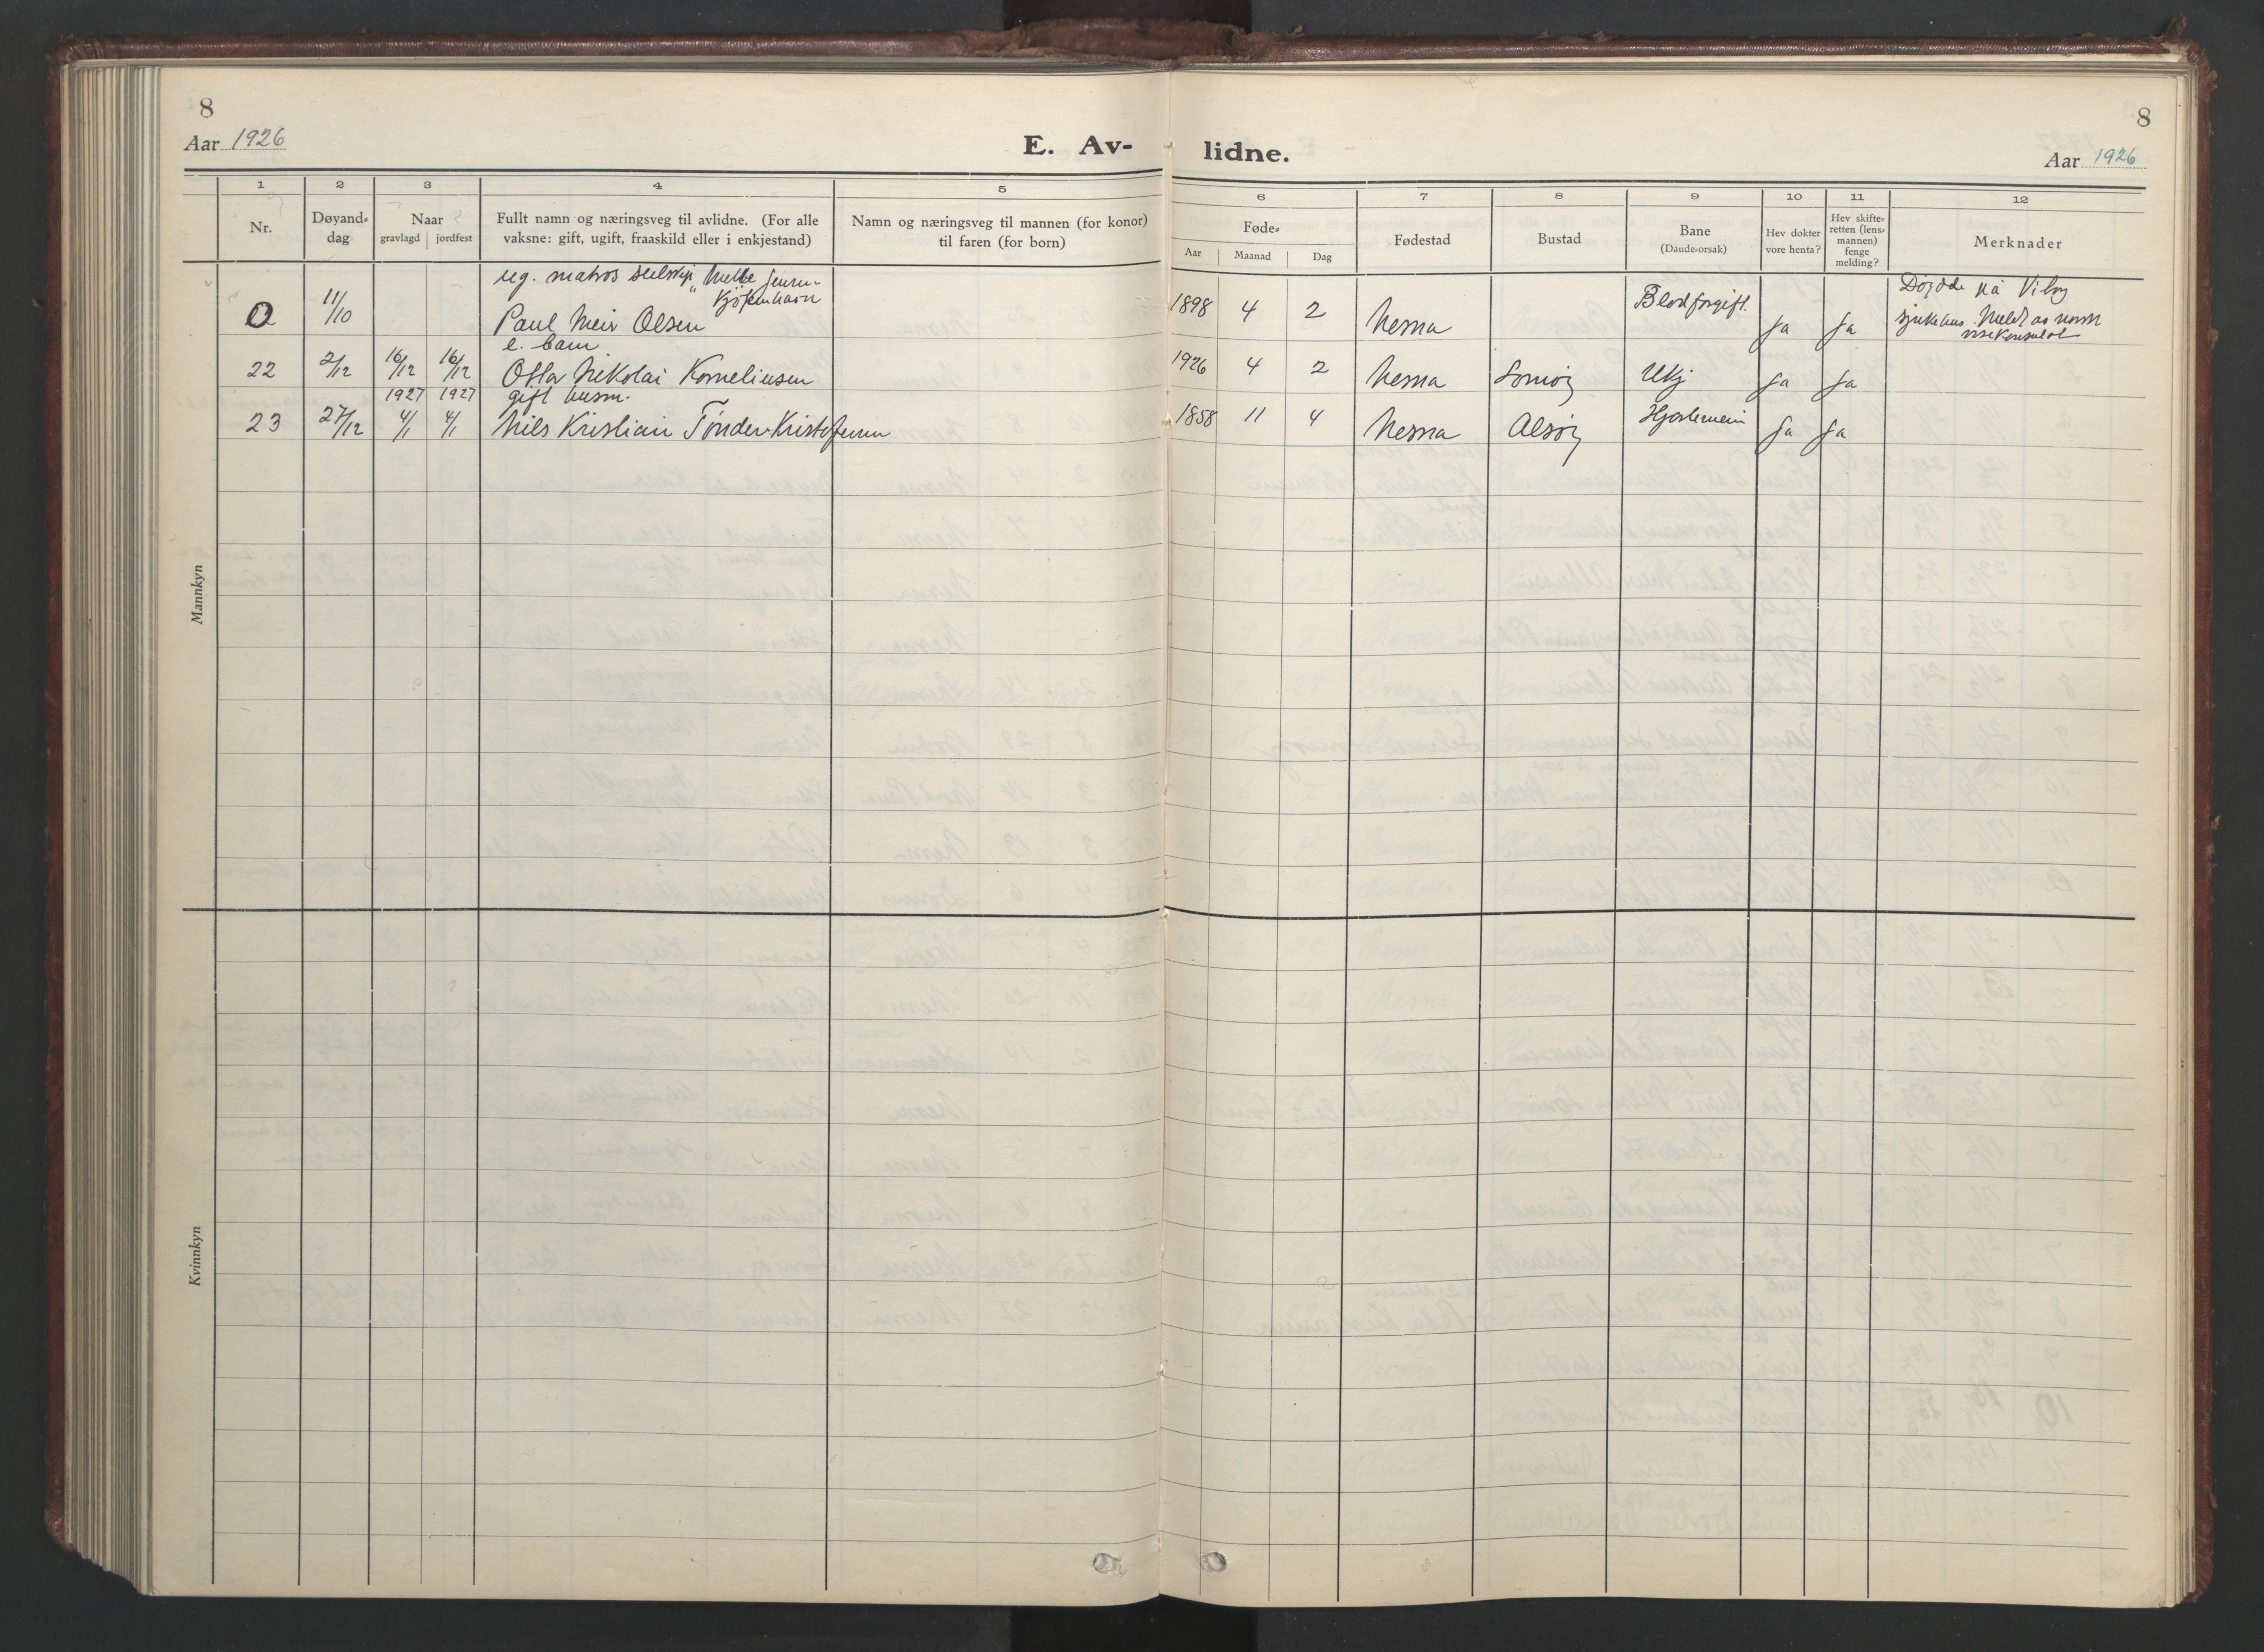 8
Aar 1926
E. Av-
lidne.
8
Aar 1926
1 2 3 4 5 6 7 8 9 10 11 12
Nr.
Døyand-
dag
Naar
gravlagd jordfest
Fullt namn og næringsveg til avlidne. (For alle
vaksne: gift, ugift, fraaskild eller i enkjestand)
Namn og næringsveg til mannen (for konor)
til faren (for born)
Føde-
Aar Maanad Dag
Fødestad
Bustad
Bane
(Daude-orsak)
Hev dokter
vore henta?
Hev skifte-
retten (lens-
mannen)
fenge
melding?
Merknader
Mannkyn
ug. matros
Kjøbenhavn
0 11/10 Paul Meir Olsen 1898 4 2 Nesna Blodforgift. Ja Ja
Døydde på Viborg
sjukehus. Meldt av norsk
visekonsulat
e. barn
22 2/12 16/12 16/12 Otta Nikolai Korneliussen 1926 4 2 Nesna Ukj Ja Ja
1927 1927 gift husm.
23 27/12 4/1 4/1 Nils Kristian Tønder Kristofersen 1858 11 4 Nesna Alsøy Ja Ja
Kvinnkyn